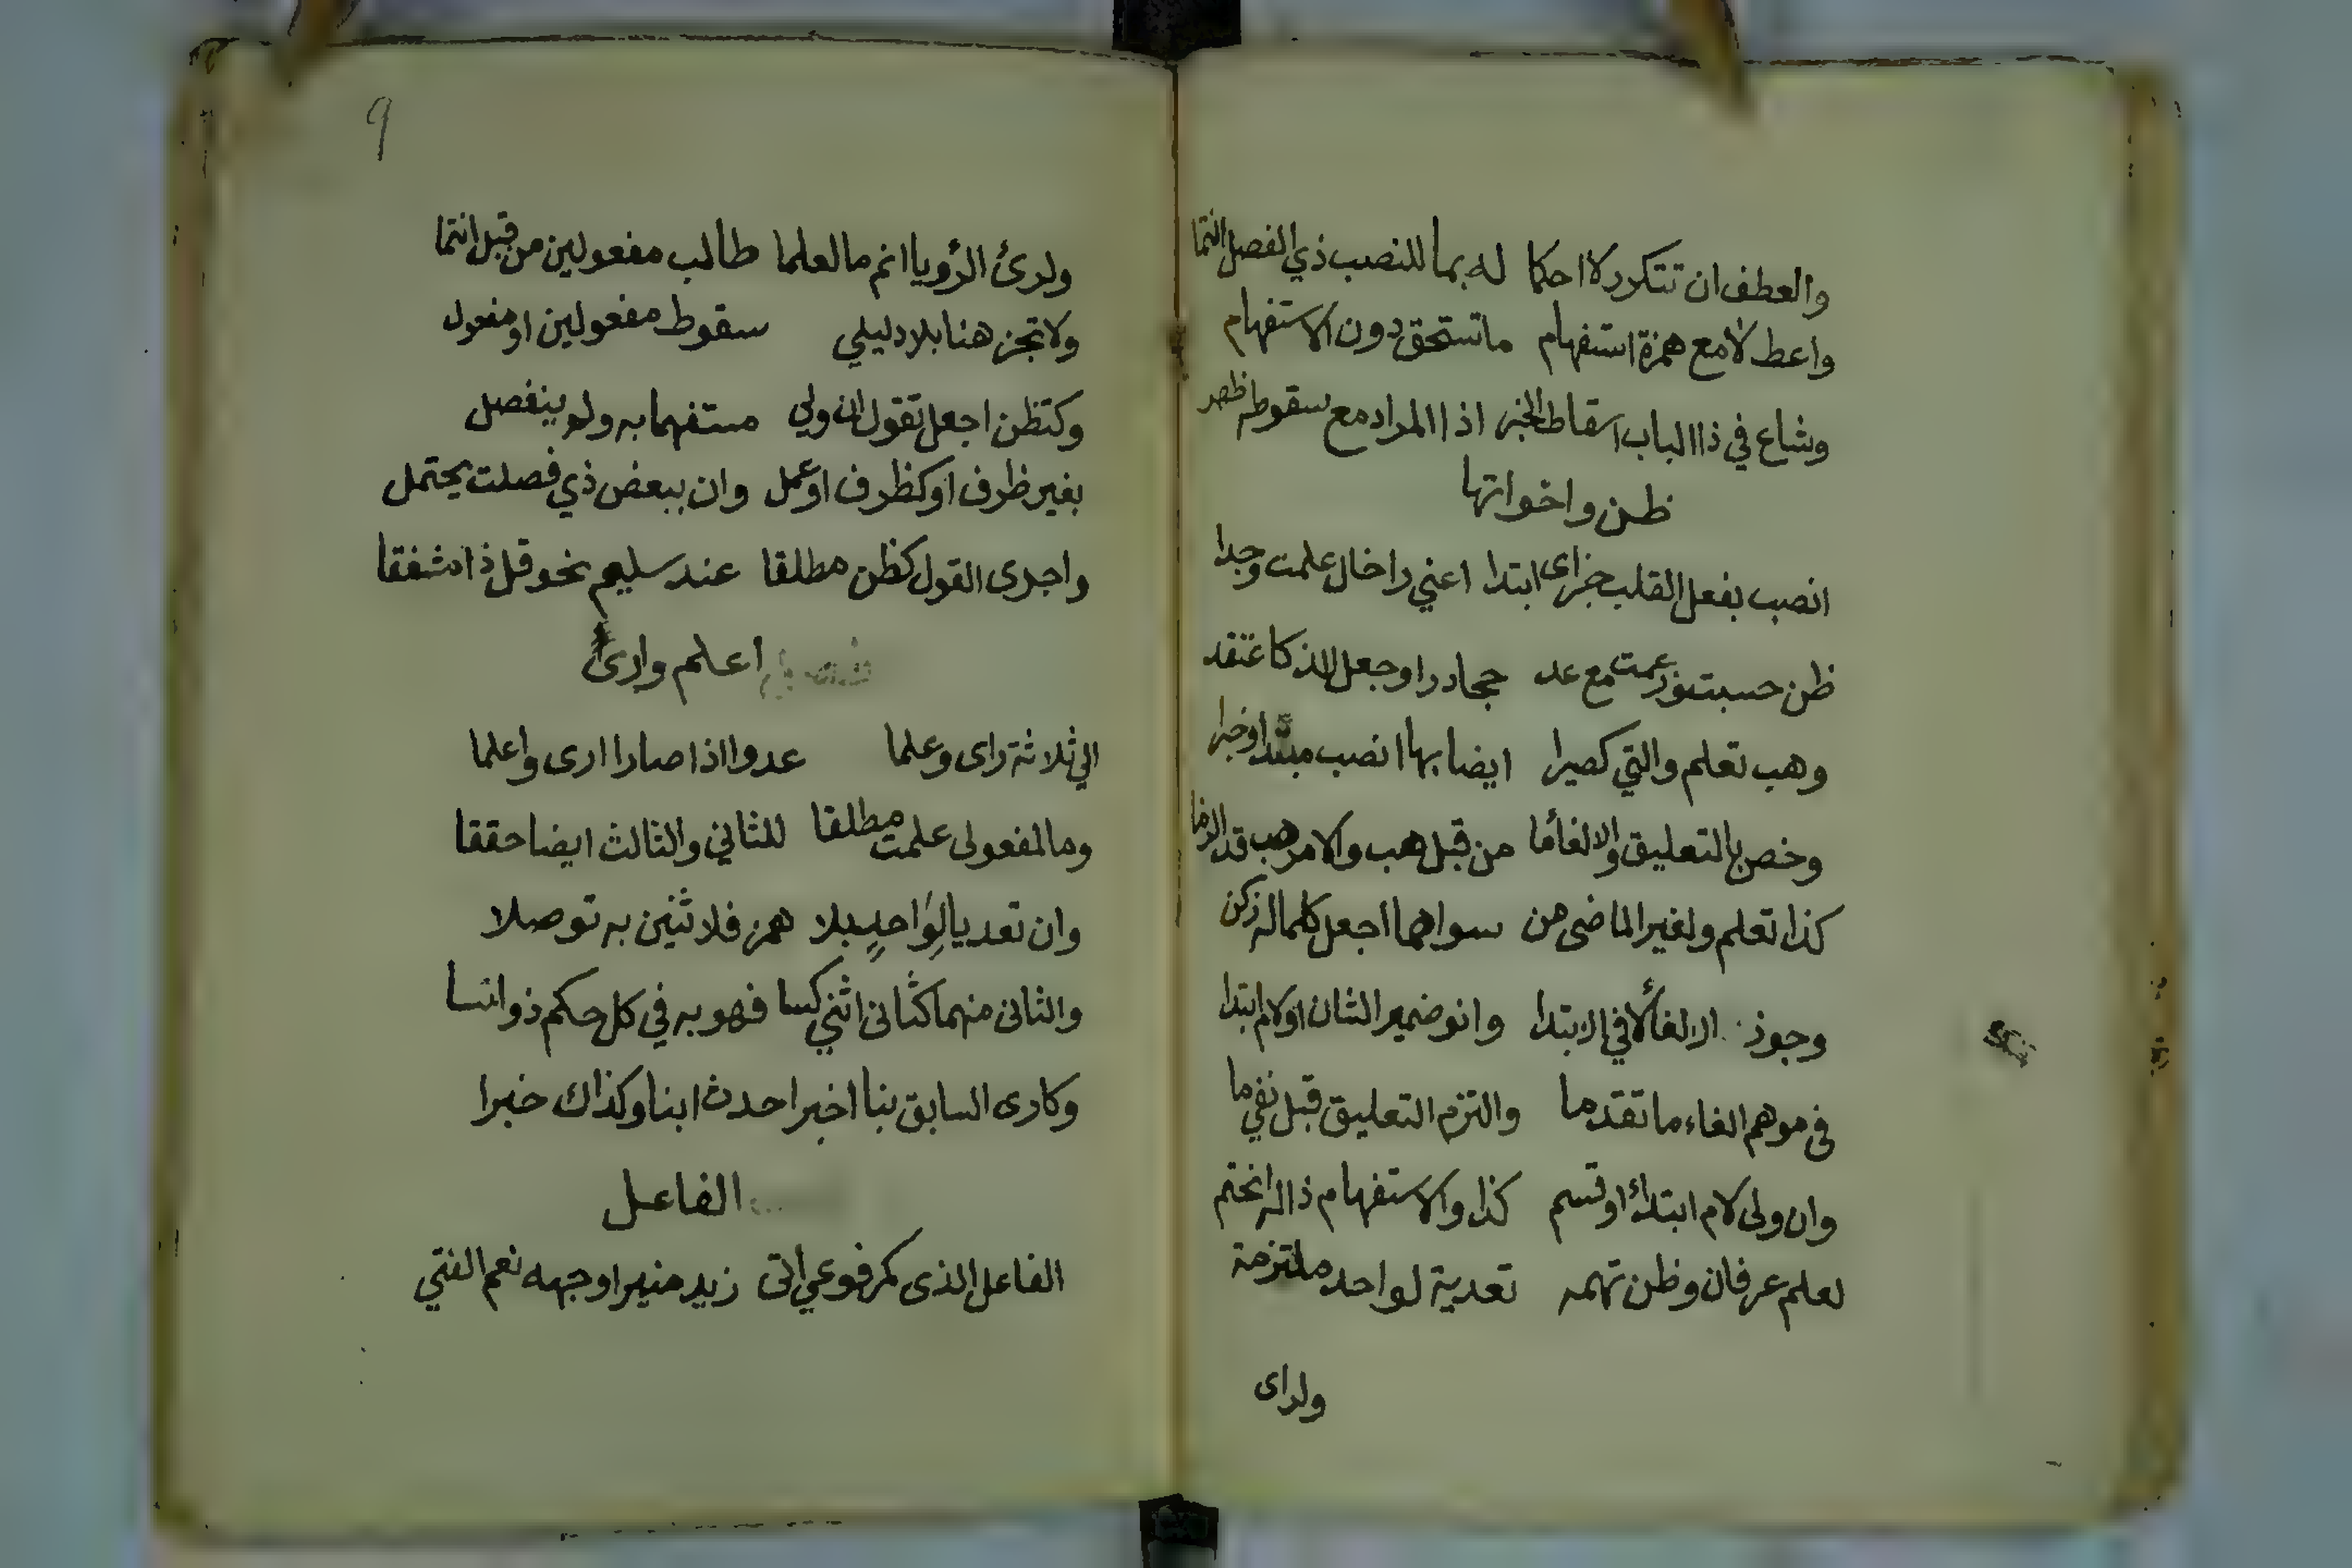 والعطف ان تتكرر لا احكما له بما للنصب ذي الفصل انتما
واعط لا مع همزة استفهام ما تستحق دون الاستفهام
وشاع في ذا الباب اسقاط الخبر اذا المراد مع سقوطه ظهر
ظن واخواتها
انصب بفعل القلب جزاى ابتدا اعني راخال علمت وجدا
ظن حسبت وزعمت مع عد حجا درا وجعل اللذ كاعتقد
وهب تعلم والتي كصيرا ايضا بها انصب مبتدا وخبرا
وخص بالتعليق والالغأ ما من قبل هب والامر هب قد الزما
كذا تعلم ولغير الماضى من سواهما اجعل كلما له زكن
وجوز الالغأ لا في الابتدا وانو ضمير الشان او لام ابتدا
فى موهم الغاء ما تقدما والتزم التعليق قبل نفي ما
وان ولى لام ابتدأ او قسم كذا والاستفهام ذا له انحتم
لعلم عرفان وظن تهمه تعدية لواحد ملتزمة
ولراى
9
ولرئ الرؤيا انم ما لعلما طالب مفعولين من قبل انتما
ولا تجز هنا بلا دليلي سقوط مفعولين او مفعول
وكتظن اجعل تقول ان ولي مستفهما به ولو ينفصل
بغير ظرف او كظرف او عمل وان ببعض ذي فصلت يحتمل
واجرى القول كظن مطلقا عند سليم نحو قل ذا مشفقا
اعلم وارئ
الي ثلاثة راى وعلما عدوا اذا صارا ارى واعلما
وما لمفعولى علمت مطلقا للثاني والثالث ايضا حققا
وان تعديا لواحد بلا همز فلاثنين به توصلا
والثانى منهما كثانى اثني كسا فهو به في كل حكم ذو ائتسا
وكارى السابق بنا اخبرا حدث ابنا وكذاك خبرا
الفاعل
الفاعل الذى كمرفوعي اتى زيد منيرا وجهه نعم الفتي